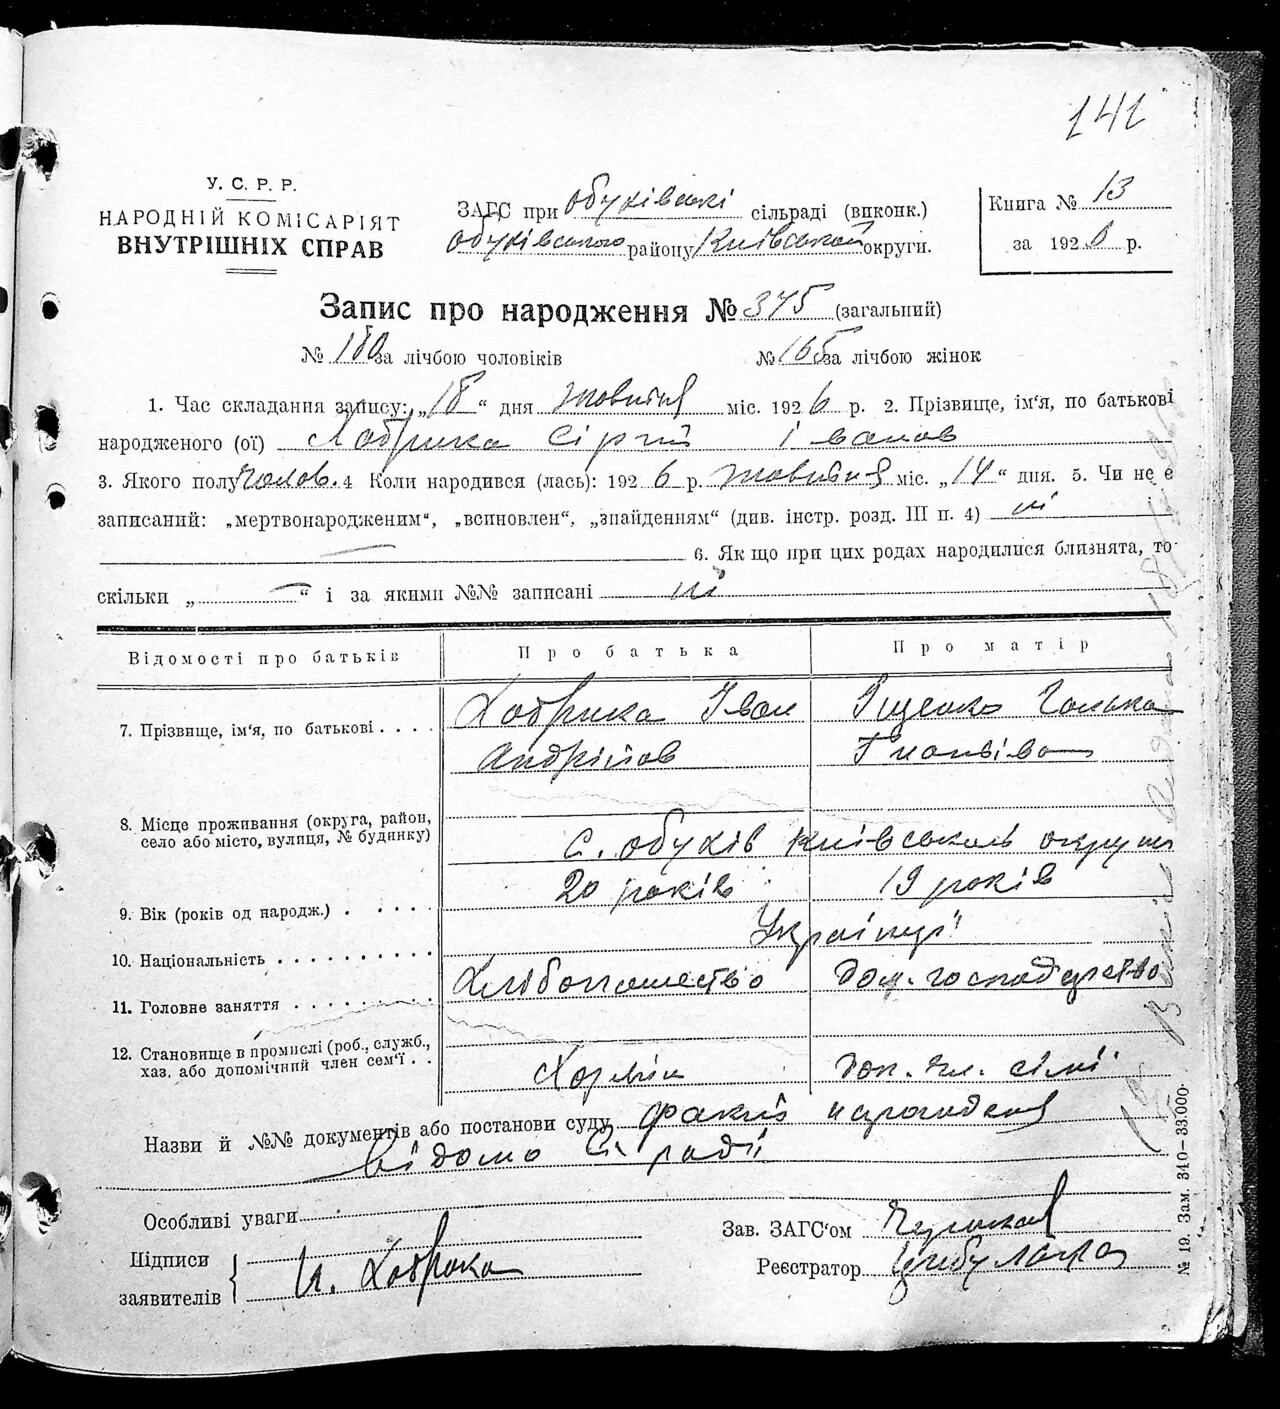 141
У. С. Р. Р.
НАРОДНІЙ КОМІСАРІЯТ
ВНУТРІШНІХ СПРАВ
ЗАГС при Обухівські сільраді (виконк.)
Обухівського району Київської округи.
Книга № 13
за 1926 р.
Запис про народження № 345 (загальний)
№ 180 за лічбою чоловіків № 165 за лічбою жінок
1. Час складання запису: „18“ дня жовтня міс. 1926 р. 2. Прізвище, ім'я, по батькові
народженого (ої) Хобрика Сіргій Іванов
3. Якого полу чолов. 4 Коли народився (лась): 1926 р. жовтня міс. „14“ дня. 5. Чи не є
записаний: „мертвонародженим“, „вспновлен“, „знайденням“ (див. інстр. розд. III п. 4) ні
6. Як що при цих родах народилися близнята, то
скільки „ — “ і за якими №№ записані ні
Відомості про батьків Про батька Про матір
7. Прізвище, ім'я, по батькові . . . . Хобрика Іван Іщенко Галька
Андріїов Гнатівна
8. Місце проживання (округа, район,
село або місто, вулиця, № будинку) с. Обухів Київської округи
9. Вік (років од народж.) . . . . . 20 років 19 років
10. Національність . . . . . . . . . . Українці
11. Головне заняття . . . . . . . . . Хлібопашество Дом. господарство
12. Становище в промислі (роб., служб.,
хаз. або допомічний член сем'ї . . Хазяїн Доп. чл. сімї
Назви й №№ документів або постанови суду факт народження
відомо С. радії
Особливі уваги
Зав. ЗАГС'ом
Підписи
заявителів И. Хобрика
Реєстратор
№ 19. Зам. 340—33.000.